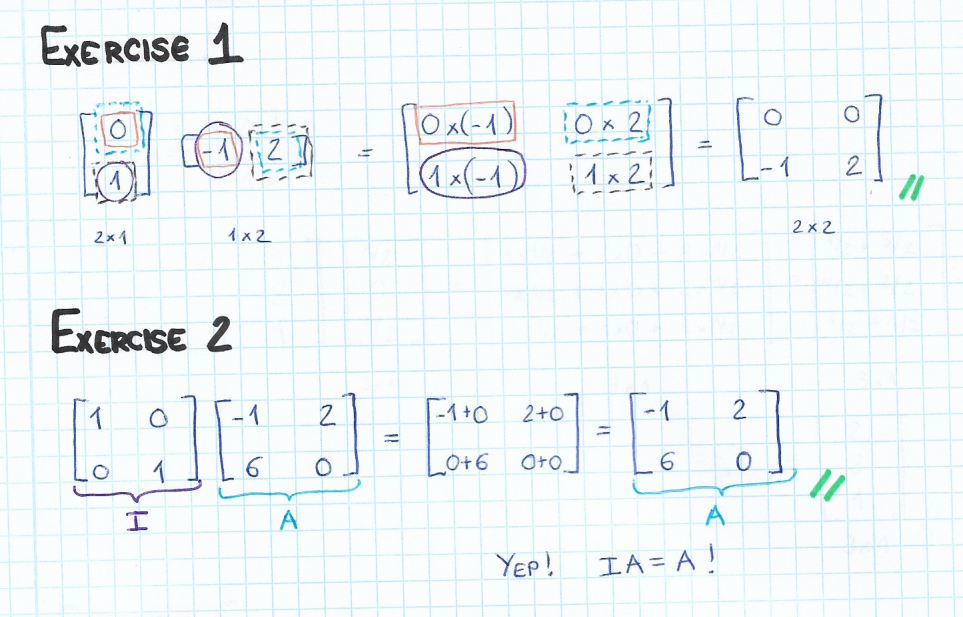 EXERCISE 1
[0 1] [-1 2] = [0×(-1) 0×2 1×(-1) 1×2] = [0 0 -1 2] //
2×1 1×2 2×2
EXERCISE 2
[1 0 0 1] [-1 2 6 0] = [-1+0 2+0 0+6 0+0] = [-1 2 6 0] //
I A A
YEP! IA = A!